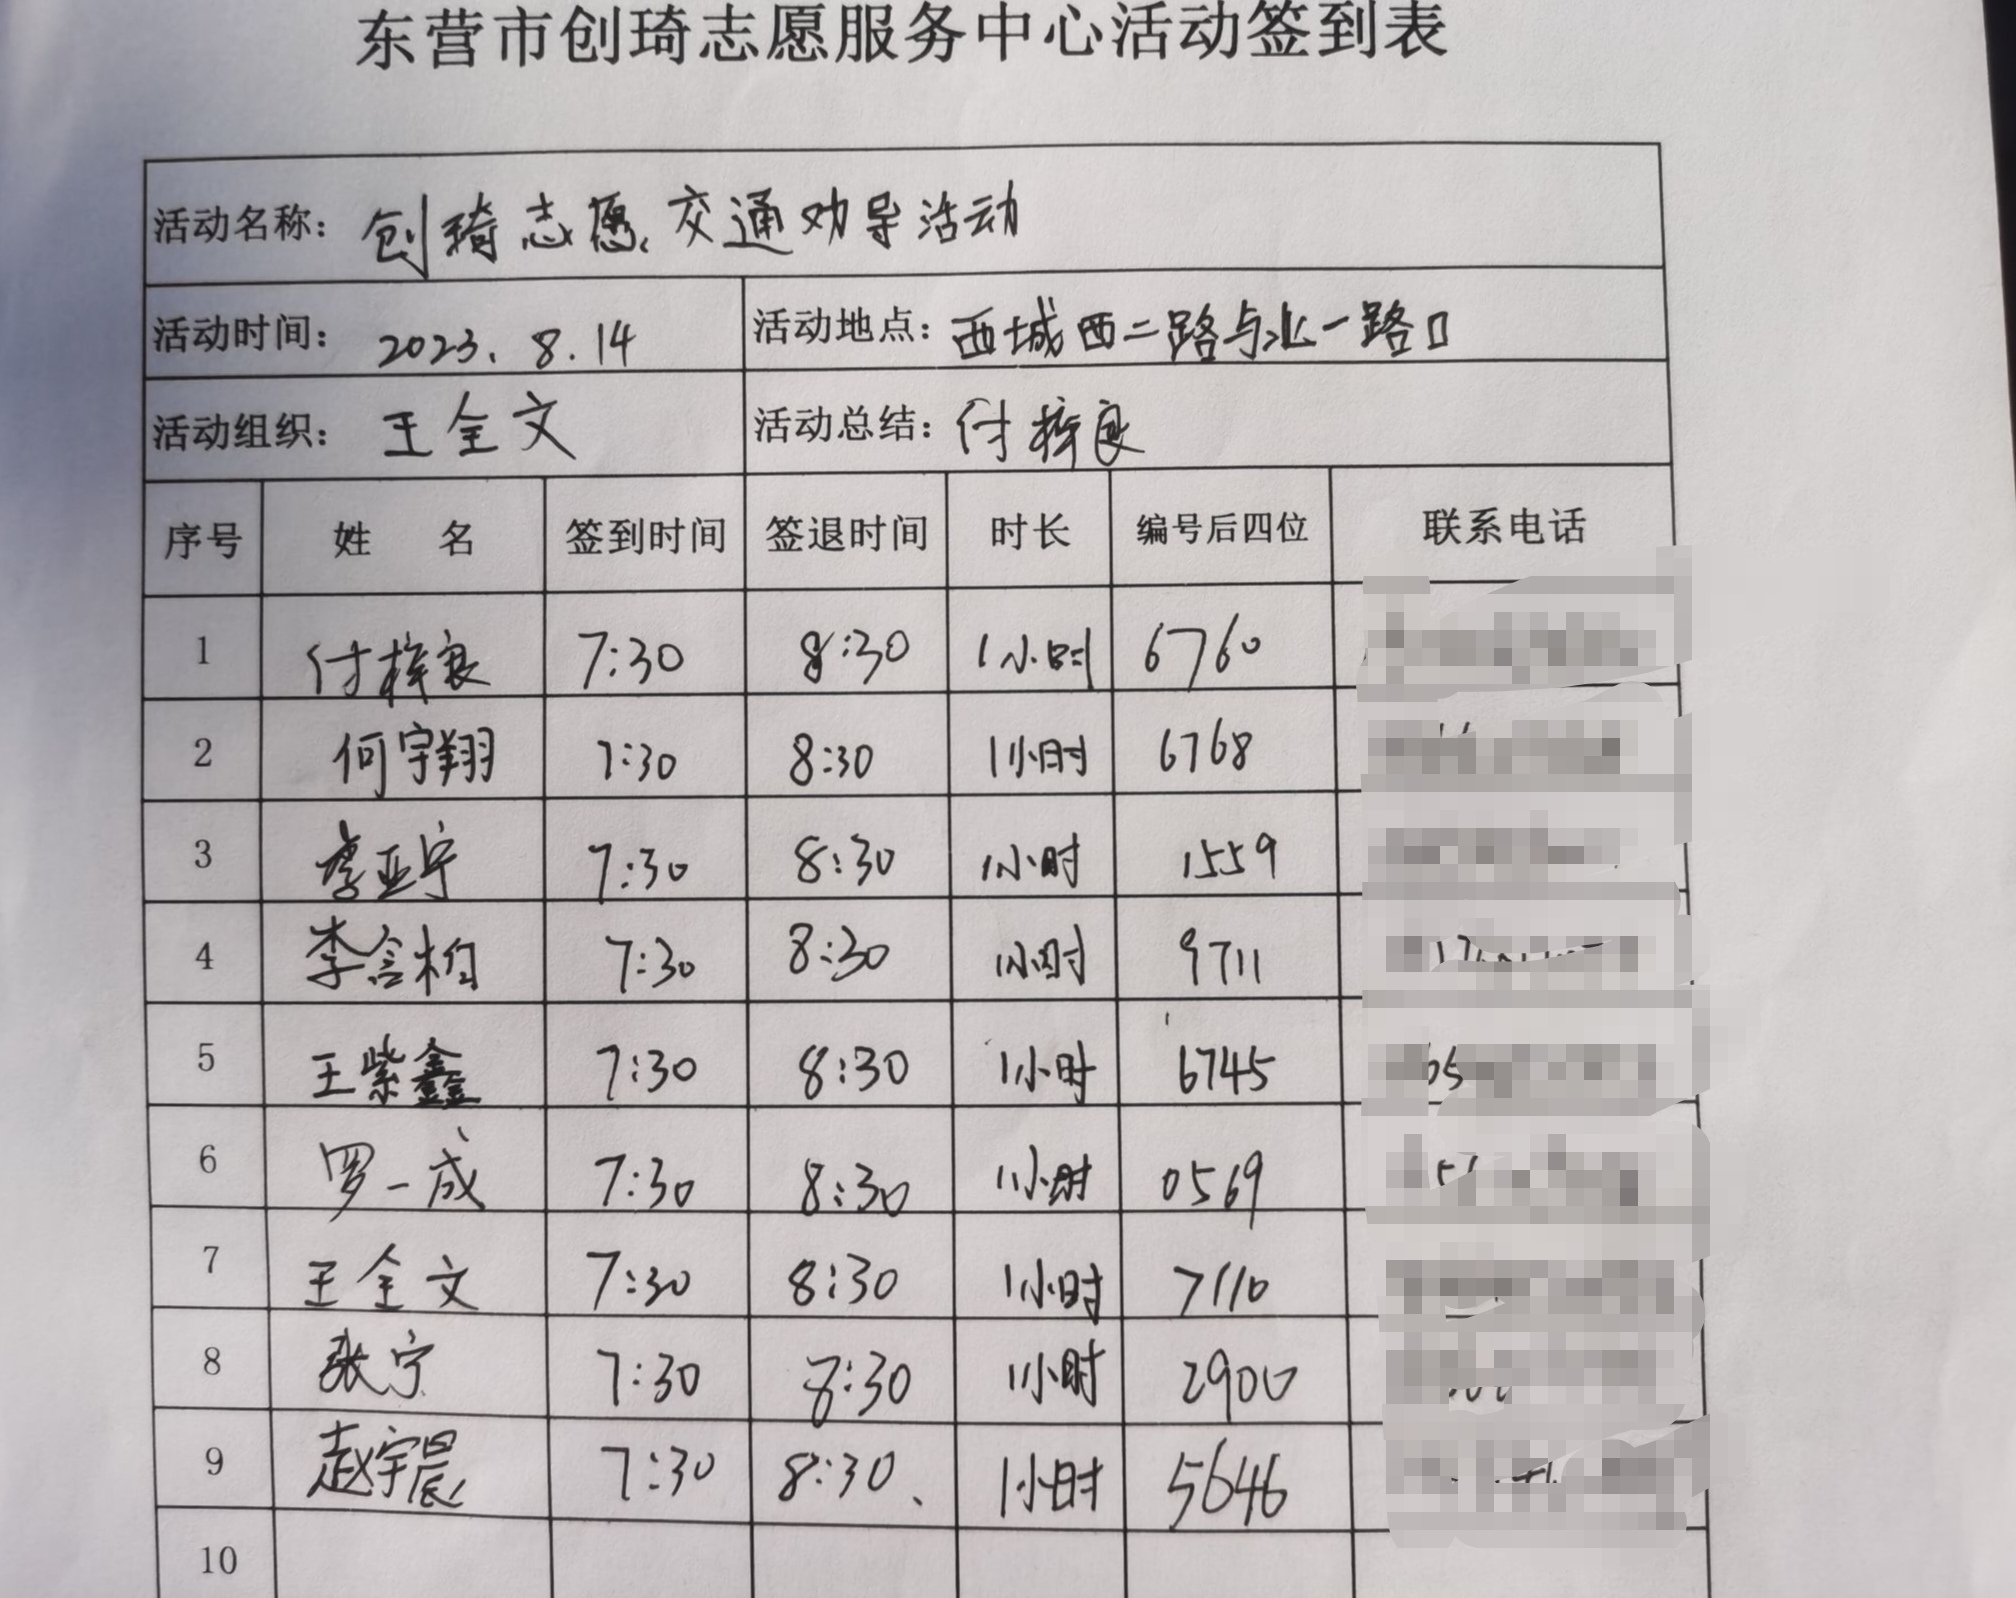 东营市创琦志愿服务中心活动签到表
活动名称: 创琦志愿交通劝导活动
活动时间: 2023.8.14 活动地点: 西城西二路与北一路口
活动组织: 王全文 活动总结: 付梓良
序号 姓 名 签到时间 签退时间 时长 编号后四位 联系电话
1 付梓良 7:30 8:30 1小时 6760
2 何宇翔 7:30 8:30 1小时 6768
3 李亚宁 7:30 8:30 1小时 1559
4 李含柏 7:30 8:30 1小时 9711
5 王紫鑫 7:30 8:30 1小时 6745
6 罗一成 7:30 8:30 1小时 0569
7 王全文 7:30 8:30 1小时 7110
8 张宁 7:30 8:30 1小时 2900
9 赵宇晨 7:30 8:30、 1小时 5646
10